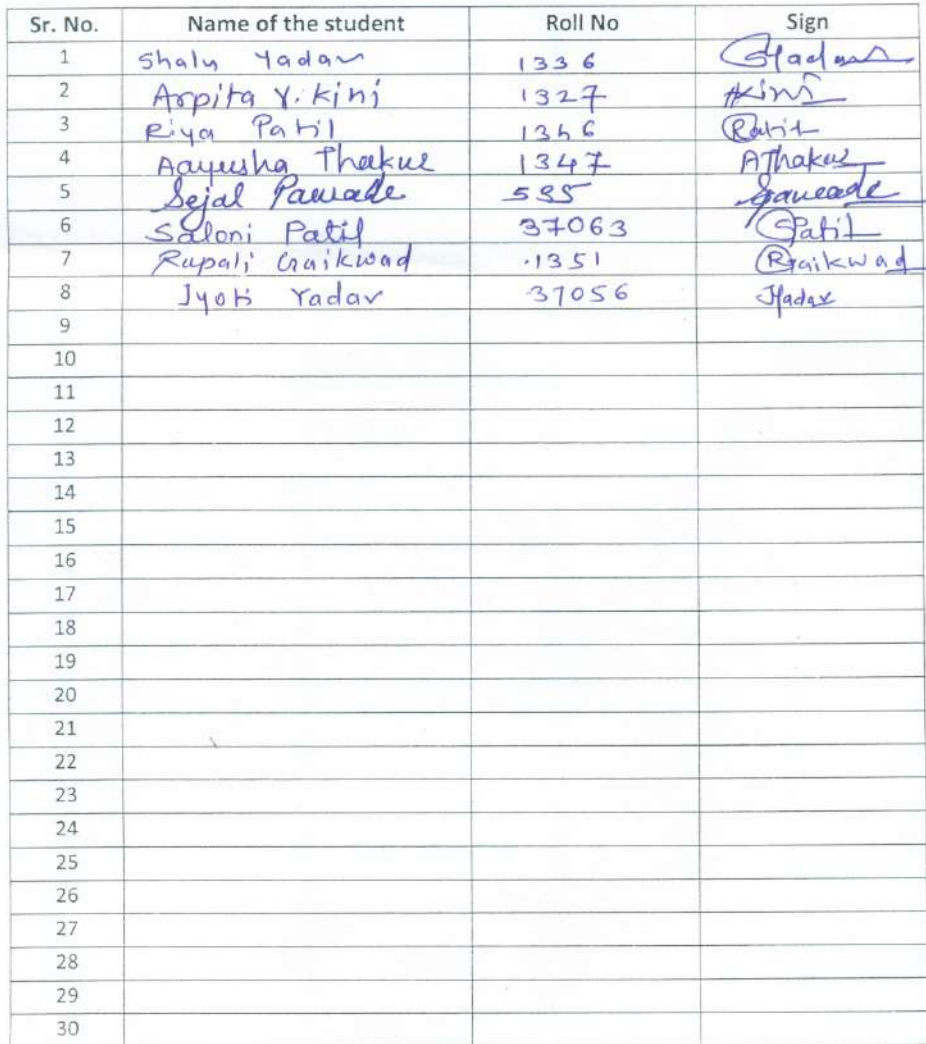 Sr. No. Name of the student Roll No Sign
1 Shalu Yadav 1336 SYadav
2 Arpita Y. Kini 1327 AKini
3 Riya Patil 1346 RPatil
4 Aayusha Thakur 1347 AThakur
5 Sejal Pawade 595 Spawade
6 Saloni Patil 37063 SPatil
7 Rupali Gaikwad 1351 RGaikwad
8 Jyoti Yadav 37056 JYadav
9
10
11
12
13
14
15
16
17
18
19
20
21
22
23
24
25
26
27
28
29
30